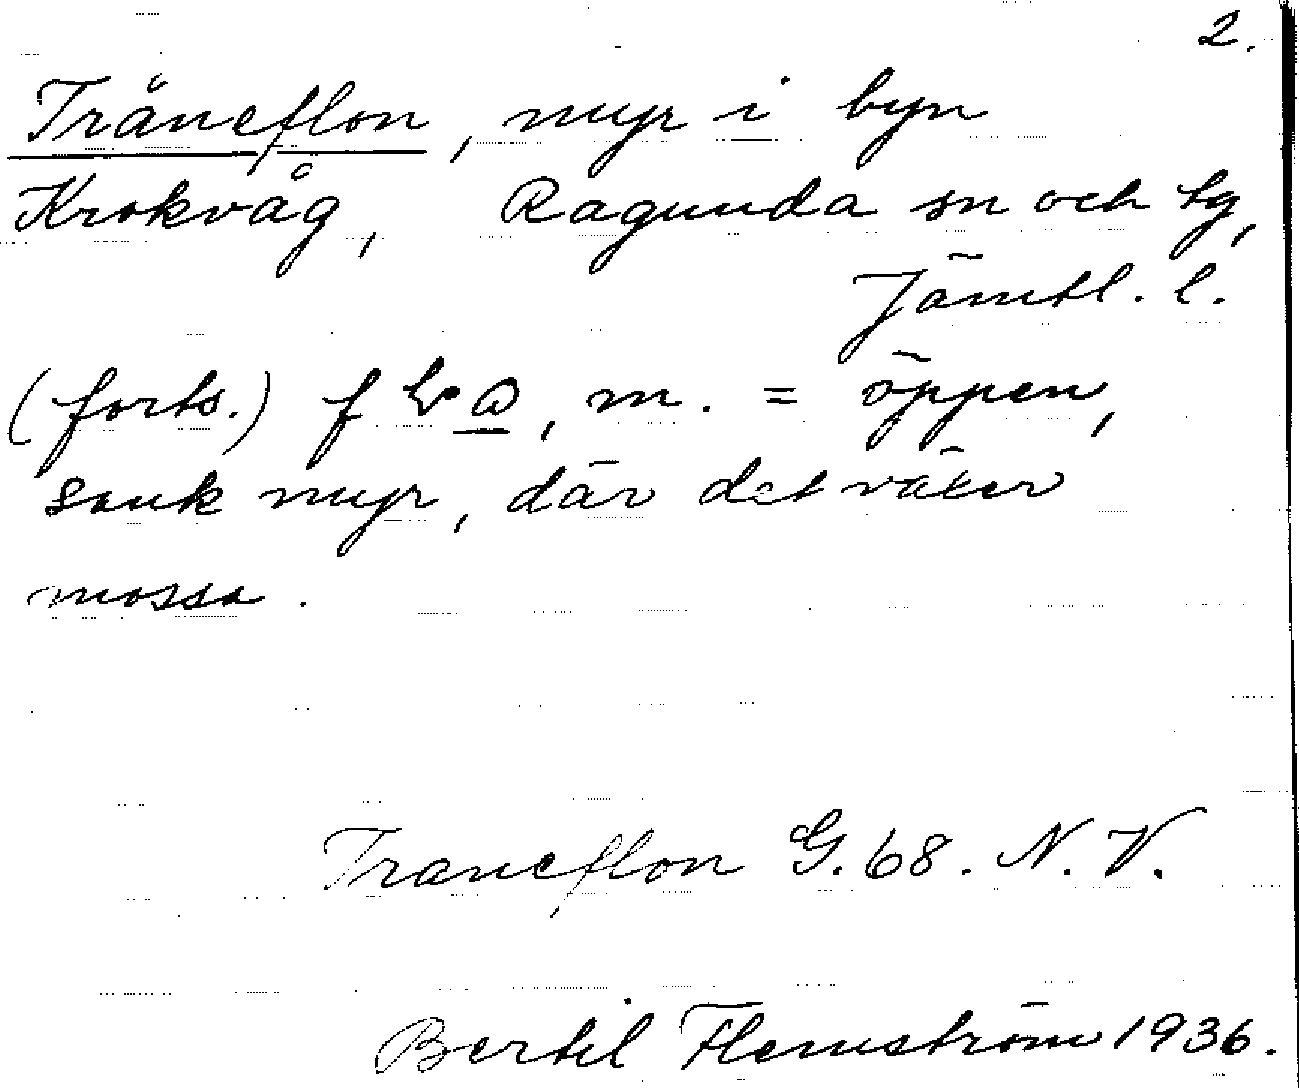 2.
Tråneflon, myr i byn
Krokvåg, Ragunda sn och tg,
Jämtl. l.
(forts.) m. = öppen,
sank myr, där det växer
mossa.
Traneflon G. 68. N. V.
Bertil Flemström 1936.